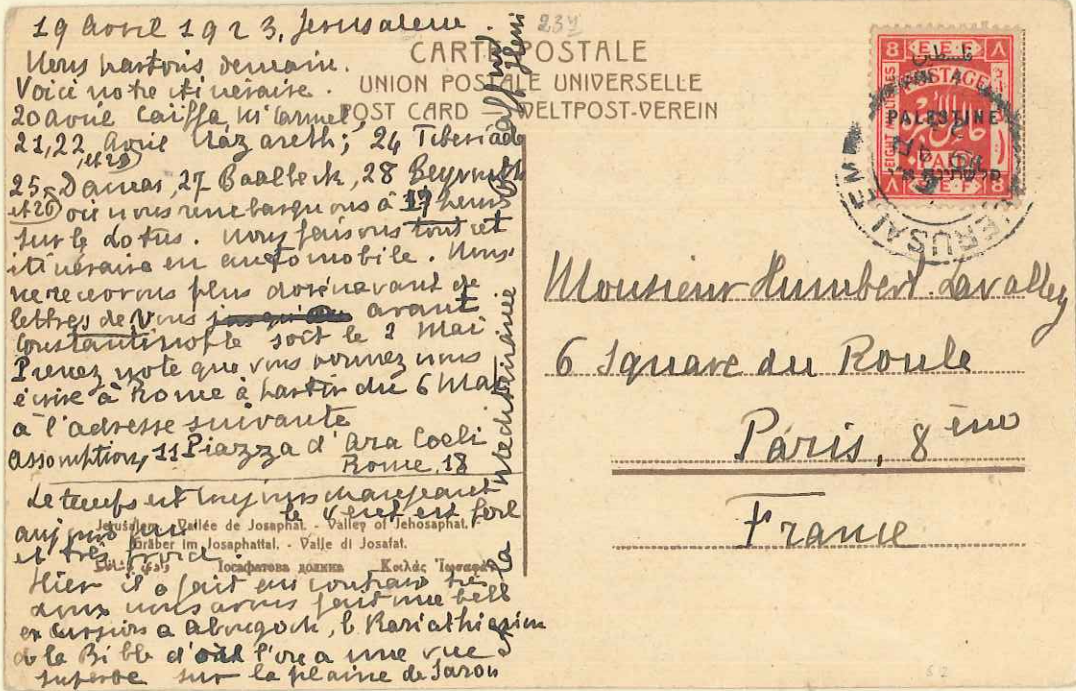 19 avril 1923, Jerusalem.
Nous partons demain.
Voici notre itinéraire.
20 avril Caïffa Mt Carmel,
21, 22 avril Nazareth; 24 Tiberiade
et 23)
25 Damas, 27 Baalbeck, 28 Beyrouth
et 26) où nous rembarquons à 17 heures
sur le Lotus. Nous faisons tout cet
itinéraire en automobile. Nous
ne recevrons plus dorénavant de
lettres de vous avant
Constantinople soit le 2 Mai
Prenez note que vous pouvez nous
écrire à Rome à partir du 6 Mai
à l'adresse suivante
Assomption, 11 Piazza d'Ara Coeli
Rome, 18
Le temps est toujours changeant
aujourd'hui le vent est fort
et très froid.
Hier il a fait au contraire très
doux nous avons fait une belle
excursion a Abougoch, le Kariathiarim
de la Bible d'où l'on a une vue
superbe sur la plaine de Saron
et la Mediterranée
Henri
234
CARTE POSTALE
UNION POSTALE UNIVERSELLE
POST CARD — WELTPOST-VEREIN
Jerusalem. - Vallée de Josaphat. - Valley of Jehosaphat.
Gräber im Josaphattal. - Valle di Josafat.
Іосафатова долина Κοιλάς Ἰωσαφάτ
8 E.E.F ٨
POSTAGE
EIGHT MILLIEMES
فلسطين
PALESTINE
PAID
פלשתינה א״י
٨ E.E.F 8
JERUSALEM
Monsieur Humbert Lavalley
6 Square du Roule
Paris, 8 ème
France
52